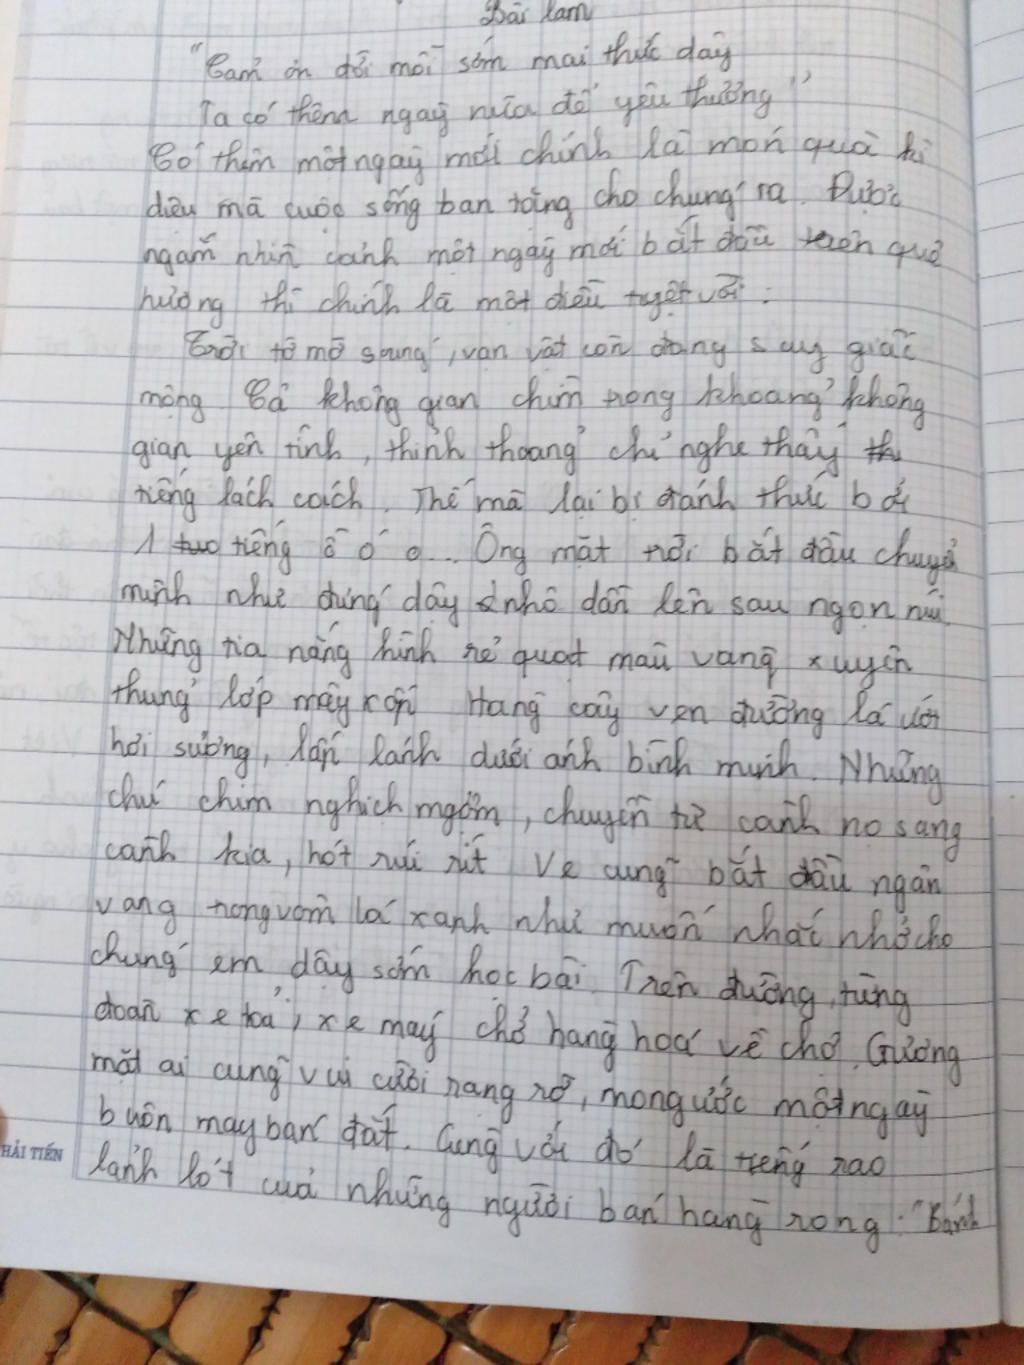 Bài làm
"Cảm ơn đời mỗi sớm mai thức dậy
Ta có thêm ngày nữa để yêu thương"
Có thêm một ngày mới chính là món quà kì
diệu mà cuộc sống ban tặng cho chúng ta. Được
ngắm nhìn cảnh một ngày mới bắt đầu trên quê
hương thì chính là một điều tuyệt vời.
Trời tờ mờ sáng, vạn vật còn đang say giấc
mộng Cả không gian chìm trong khoảng không
gian yên tĩnh, thỉnh thoảng chỉ nghe thấy
tiếng lách cách. Thế mà lại bị đánh thức bởi
1 tiếng ò ó o... Ông mặt trời bắt đầu chuyển
mình như đứng dậy nhô dần lên sau ngọn núi.
Những tia nắng hình rẻ quạt màu vàng xuyên
thủng lớp mây xốp Hàng cây ven đường lá ướt
hơi sương, lấp lánh dưới ánh bình minh. Những
chú chim nghịch ngợm, chuyền từ cành nọ sang
cành kia, hót ríu rít Ve cũng bắt đầu ngân
vang trong vòm lá xanh như muốn nhắc nhở cho
chúng em dậy sớm học bài. Trên đường, từng
đoàn xe tải, xe máy chở hàng hoá về chợ. Gương
mặt ai cũng vui cười rạng rỡ, mong ước một ngày
buôn may bán đắt. Cùng với đó là tiếng rao
lảnh lót của những người bán hàng rong: "Bánh
HẢI TIẾN